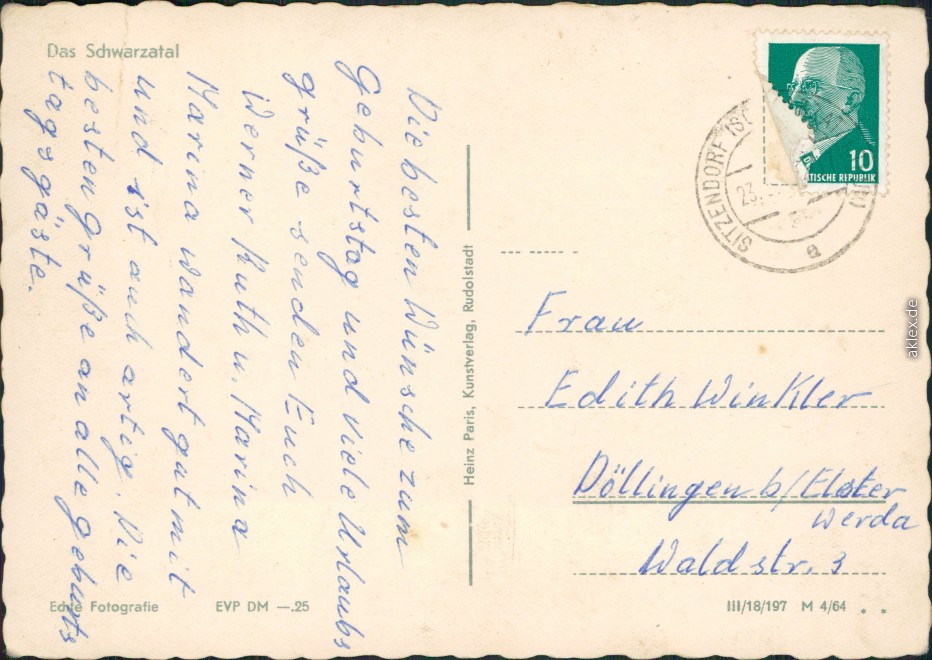 Das Schwarzatal
Die besten Wünsche zum
Geburtstag und viele Urlaubs
grüße senden Euch
Werner Ruth u. Marina
Marina wandert gut mit
und ist auch artig. Die
besten grüße an alle geburts
tagsgäste.
Echte Fotografie
EVP DM —.25
Heinz Paris, Kunstverlag, Rudolstadt
10
TISCHE REPUBLIK
SITZENDORF (SC
23.
a
Frau
Edith Winkler
Döllingen b/Elster
werda
Waldstr. 3
III/18/197 M 4/64
aklex.de